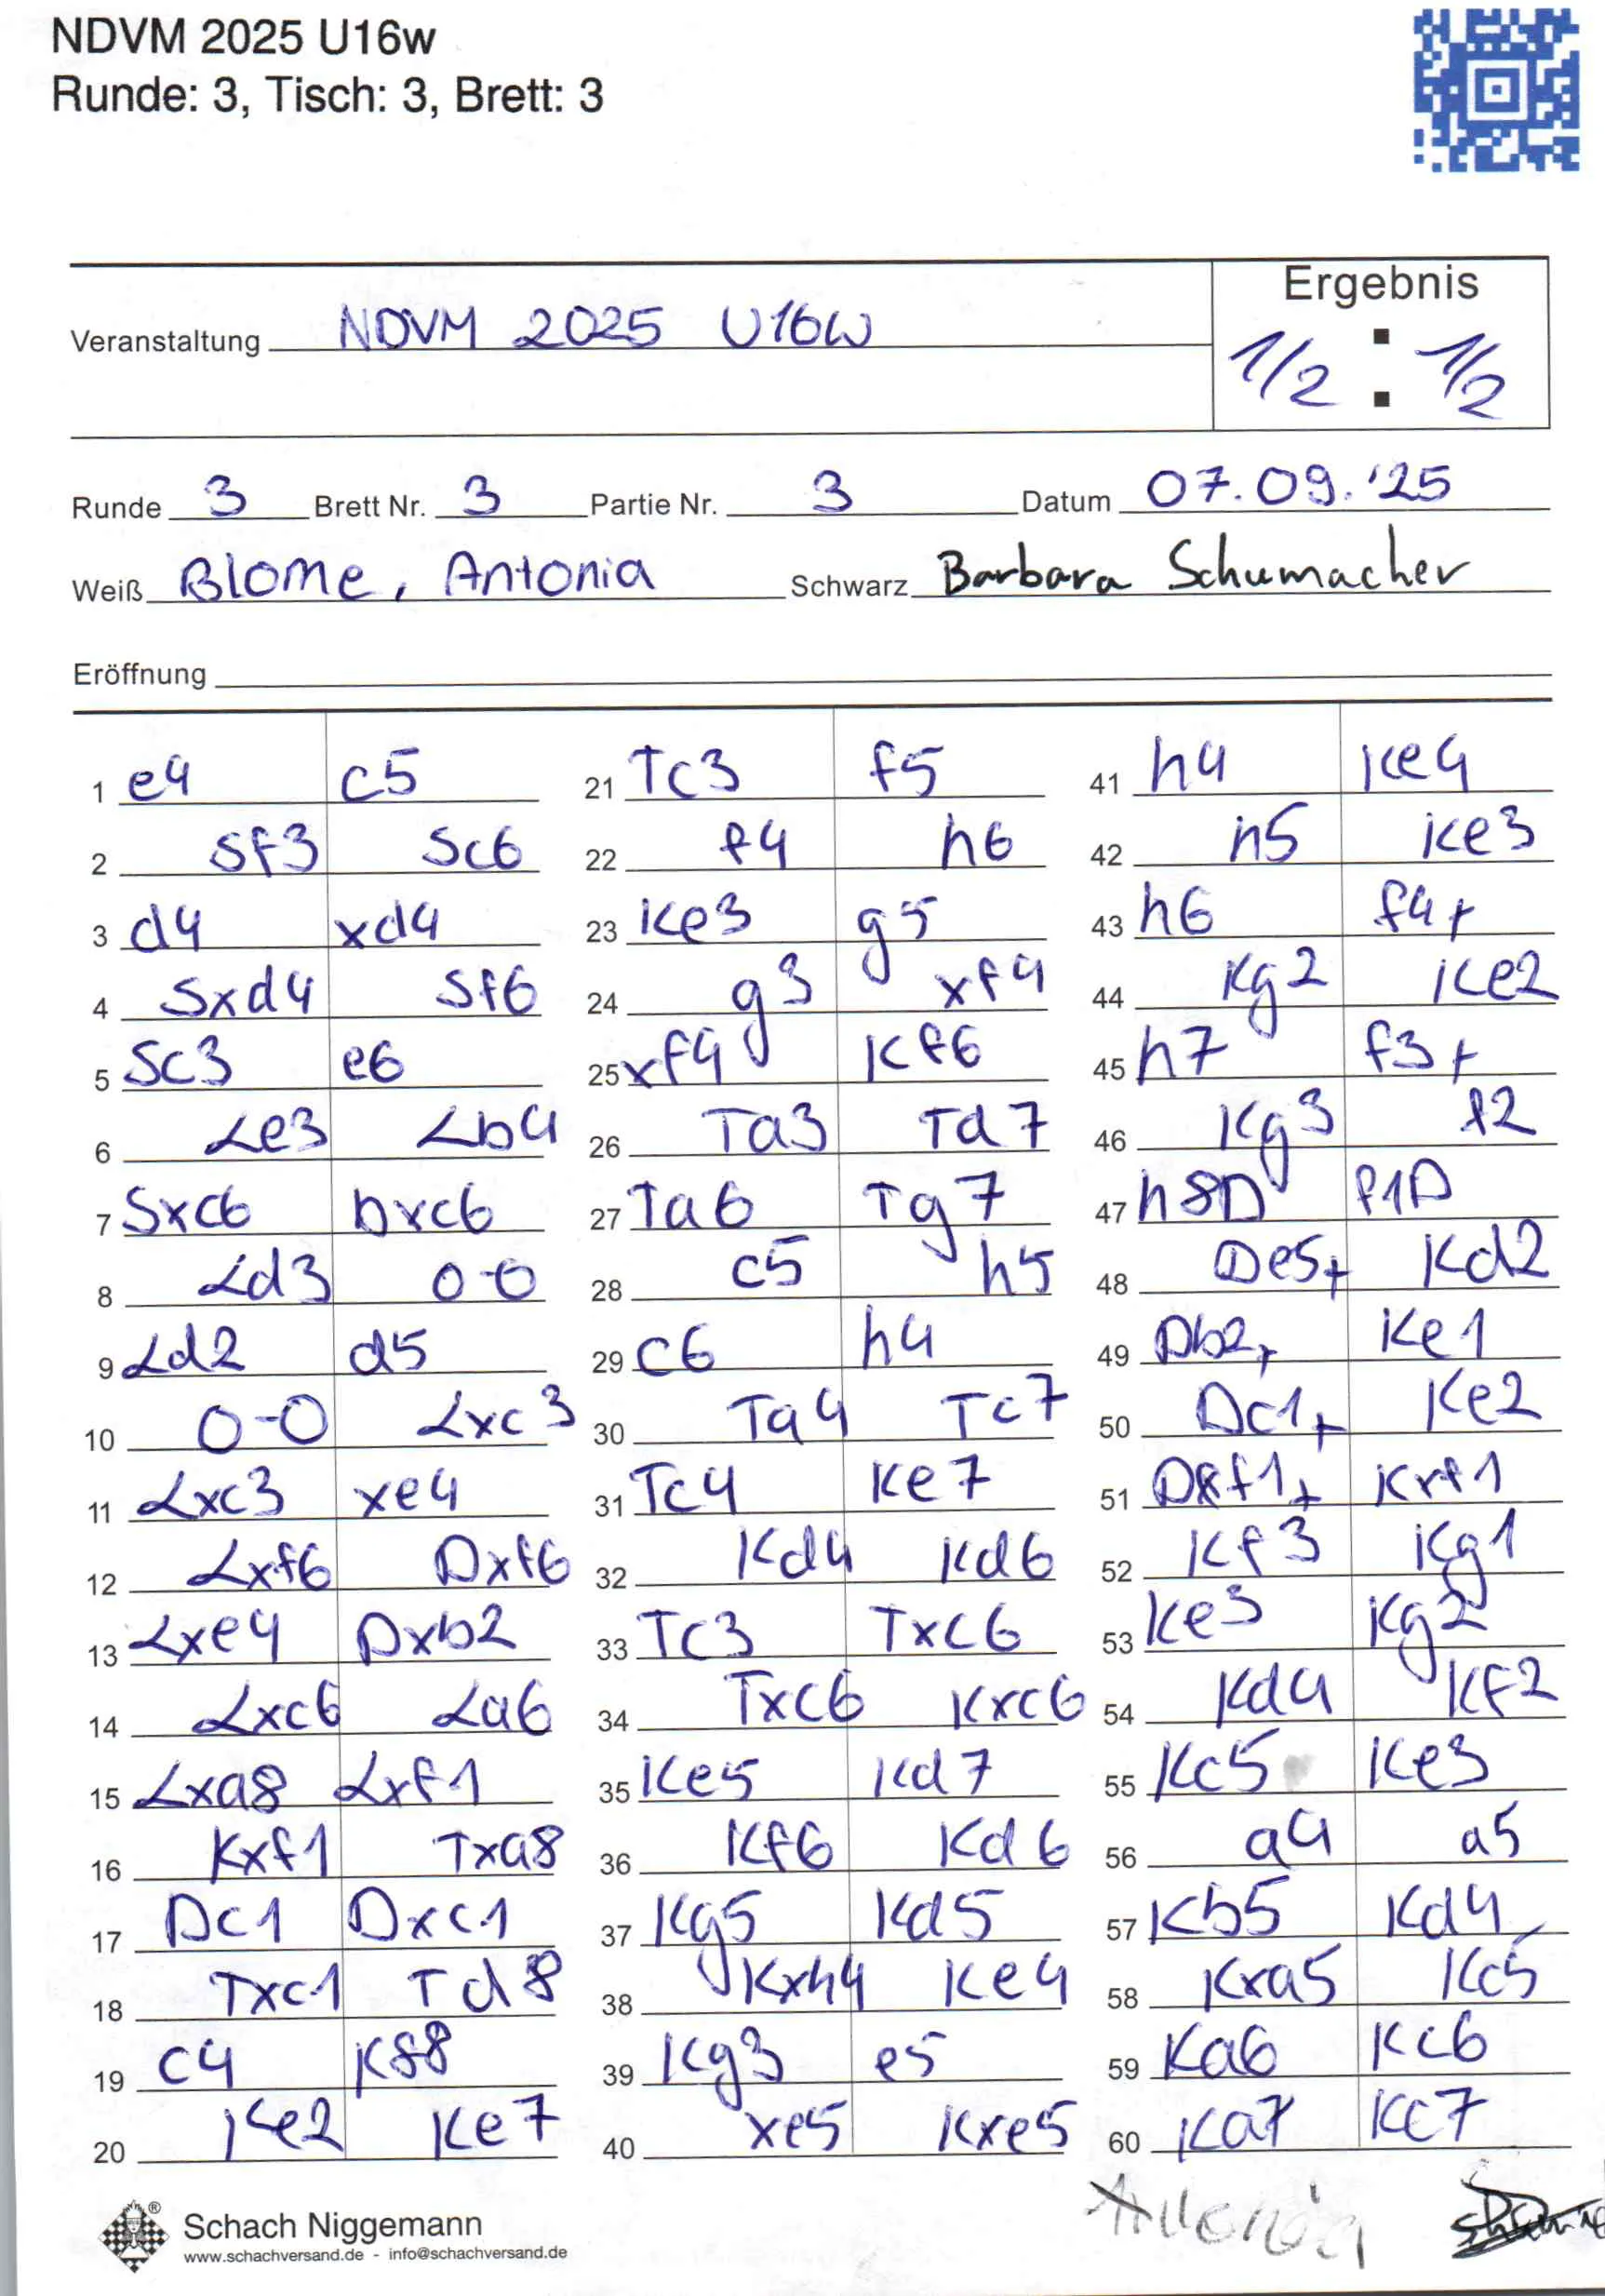 NDVM 2025 U16w
Runde: 3, Tisch: 3, Brett: 3
Ergebnis
Veranstaltung NDVM 2025 U16W
1/2 : 1/2
Runde 3 Brett Nr. 3 Partie Nr. 3 Datum 07.09.'25
Weiß Blome, Antonia Schwarz Barbara Schumacher
Eröffnung
1 e4 c5
2 Sf3 Sc6
3 d4 xd4
4 Sxd4 Sf6
5 Sc3 e6
6 Le3 Lb4
7 Sxc6 bxc6
8 Ld3 0-0
9 Ld2 d5
10 0-0 Lxc3
11 Lxc3 xe4
12 Lxf6 Dxf6
13 Lxe4 Dxb2
14 Lxc6 La6
15 Lxa8 Lxf1
16 Kxf1 Txa8
17 Dc1 Dxc1
18 Txc1 Td8
19 c4 Kf8
20 Ke2 Ke7
21 Tc3 f5
22 f4 h6
23 Ke3 g5
24 g3 xf4
25 xf4 Kf6
26 Ta3 Td7
27 Ta6 Tg7
28 c5 h5
29 c6 h4
30 Ta4 Tc7
31 Tc4 Ke7
32 Kd4 Kd6
33 Tc3 Txc6
34 Txc6 Kxc6
35 Ke5 Kd7
36 Kf6 Kd6
37 Kg5 Kd5
38 Kxh4 Ke4
39 Kg3 e5
40 xe5 Kxe5
41 h4 Ke4
42 h5 Ke3
43 h6 f4+
44 Kg2 Ke2
45 h7 f3+
46 Kg3 f2
47 h8D f1D
48 De5+ Kd2
49 Db2+ Ke1
50 Dc1+ Ke2
51 Dxf1+ Kxf1
52 Kf3 Kg1
53 Ke3 Kg2
54 Kd4 Kf2
55 Kc5 Ke3
56 a4 a5
57 Kb5 Kd4
58 Kxa5 Kc5
59 Ka6 Kc6
60 Ka7 Kc7
Antonia
®
Schach Niggemann
www.schachversand.de - info@schachversand.de